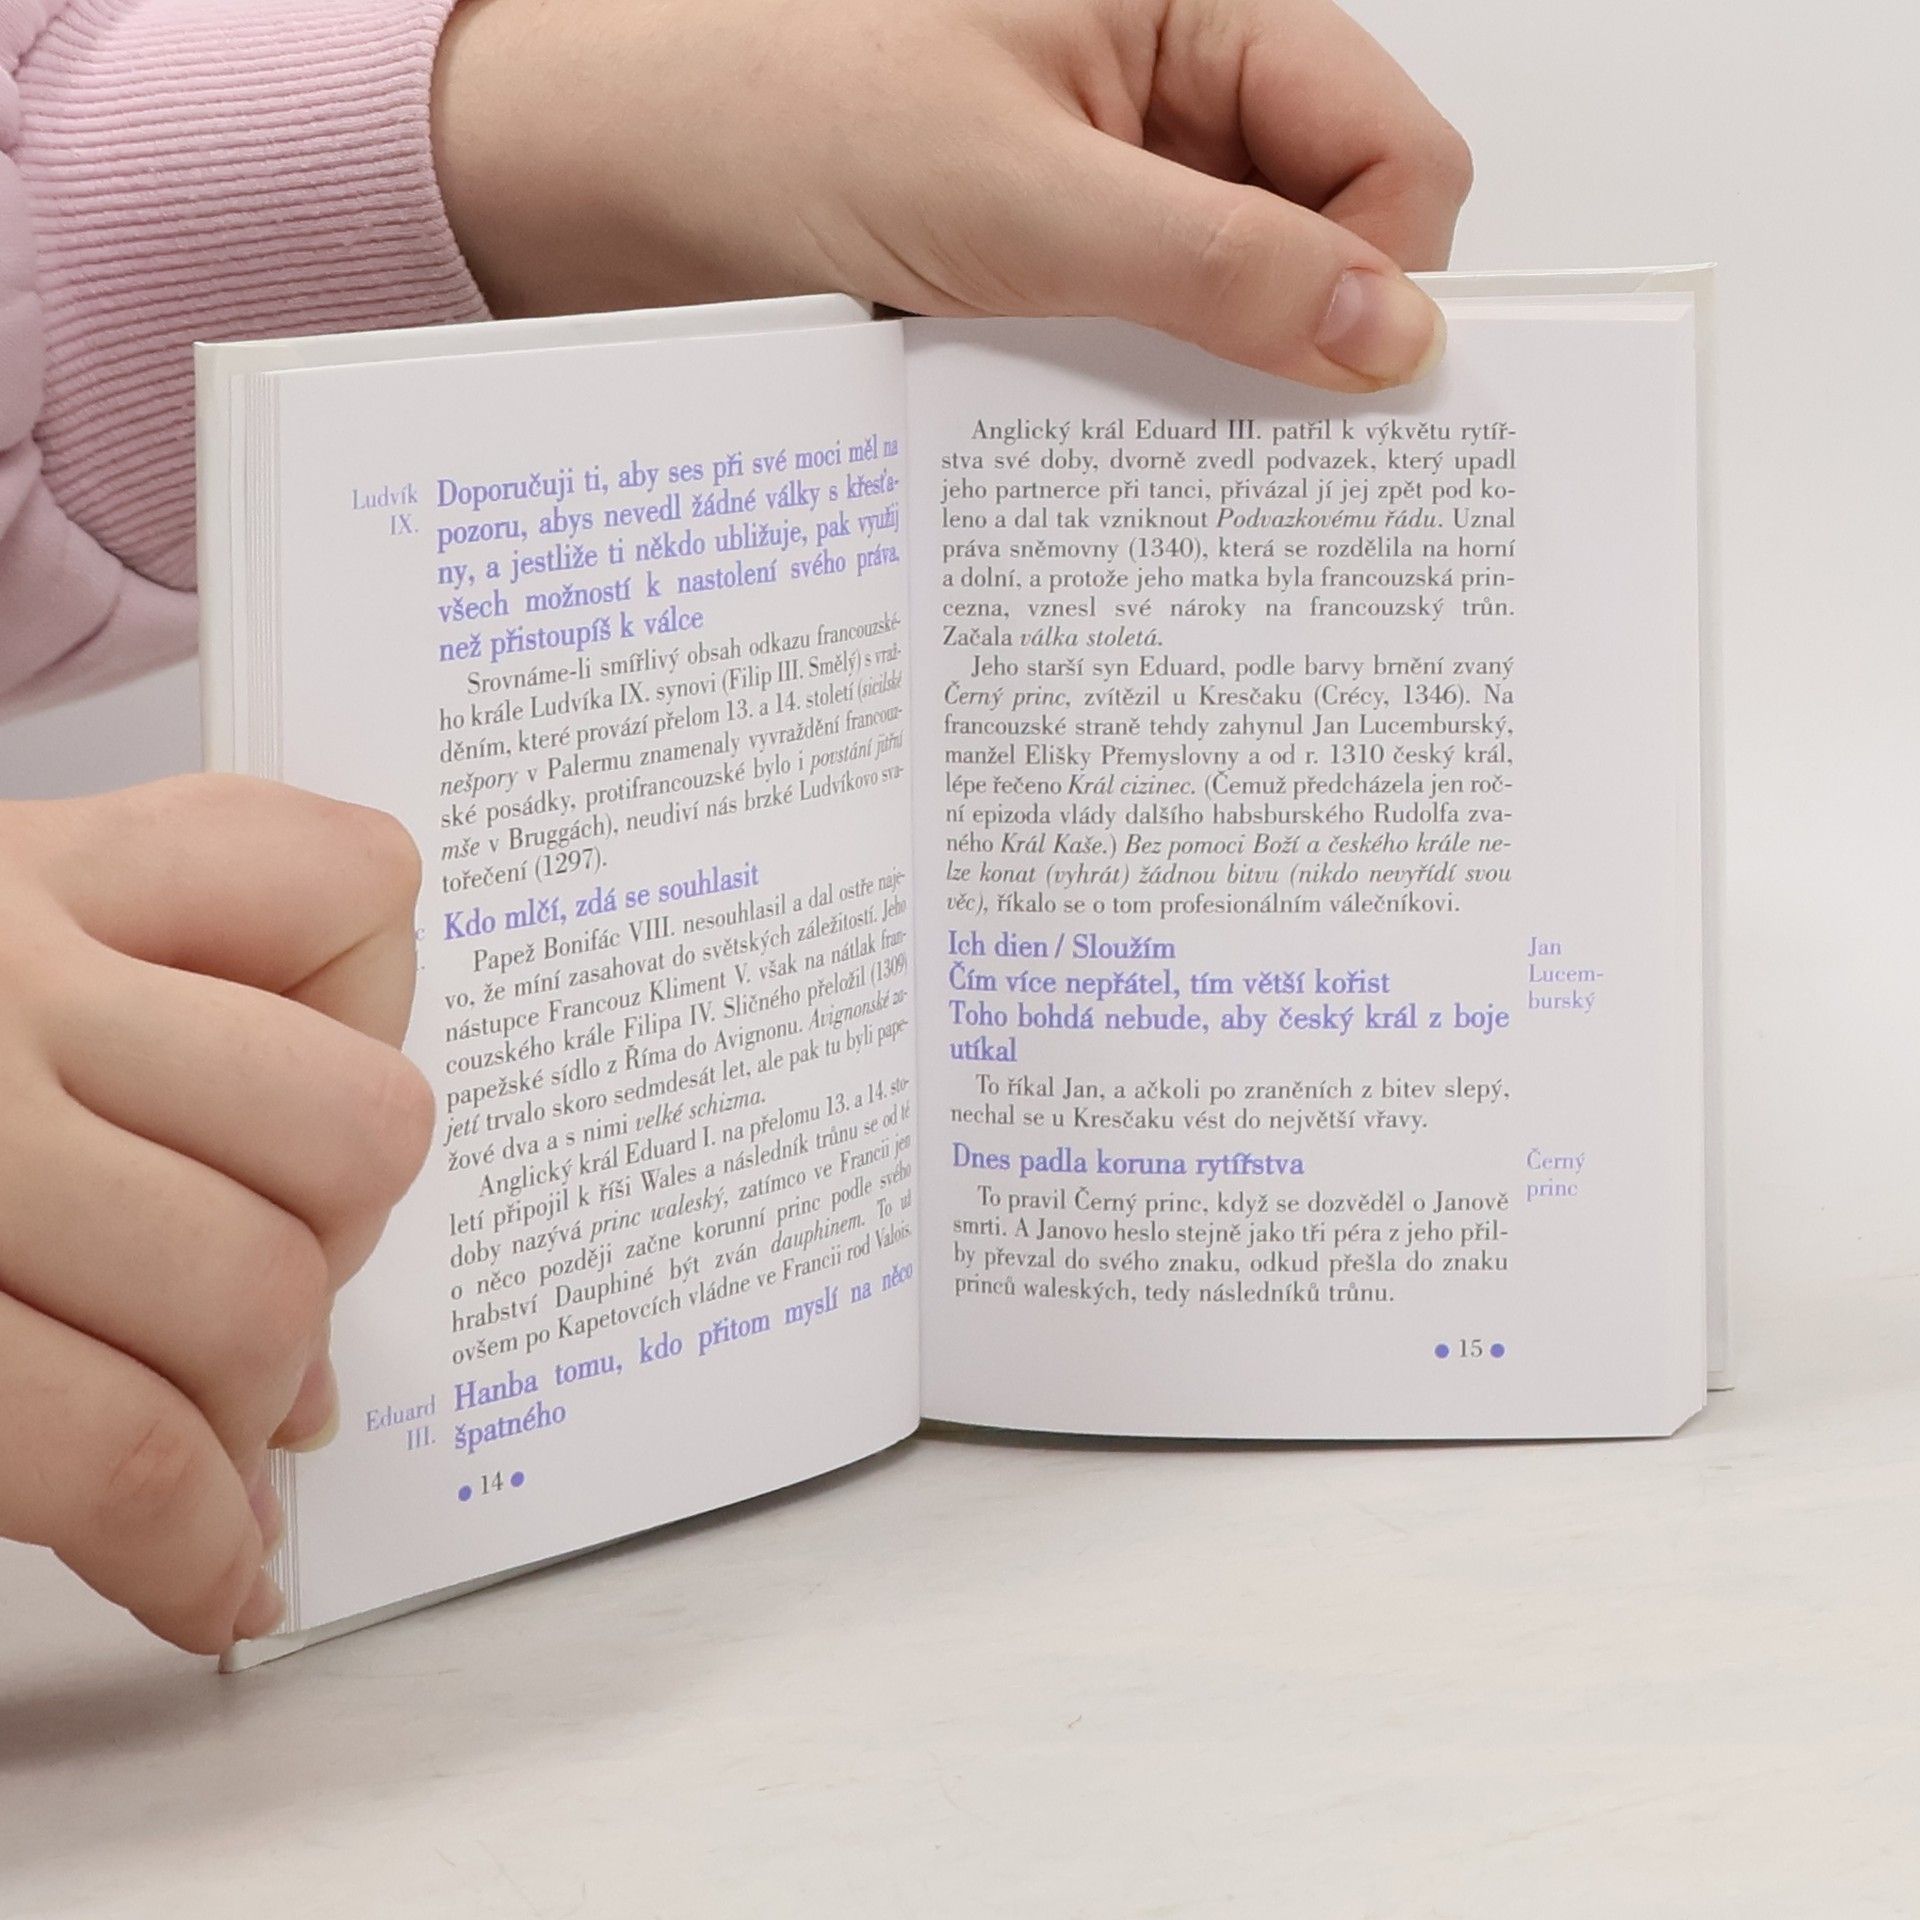 Ludvík
IX.
Doporučuji ti, aby ses při své moci měl na
pozoru, abys nevedl žádné války s křesťa-
ny, a jestliže ti někdo ubližuje, pak využij
všech možností k nastolení svého práva,
než přistoupíš k válce
Srovnáme-li smířlivý obsah odkazu francouzské-
ho krále Ludvíka IX. synovi (Filip III. Smělý) s vraž-
děním, které provází přelom 13. a 14. století (sicilské
nešpory v Palermu znamenaly vyvraždění francouz-
ské posádky, protifrancouzské bylo i povstání jitřní
mše v Bruggách), neudiví nás brzké Ludvíkovo sva-
tořečení (1297).
Kdo mlčí, zdá se souhlasit
Papež Bonifác VIII. nesouhlasil a dal ostře naje-
vo, že míní zasahovat do světských záležitostí. Jeho
nástupce Francouz Kliment V. však na nátlak fran-
couzského krále Filipa IV. Sličného přeložil (1309)
papežské sídlo z Říma do Avignonu. Avignonské za-
jetí trvalo skoro sedmdesát let, ale pak tu byli pape-
žové dva a s nimi velké schizma.
Anglický král Eduard I. na přelomu 13. a 14. sto-
letí připojil k říši Wales a následník trůnu se od té
doby nazývá princ waleský, zatímco ve Francii jen
o něco později začne korunní princ podle svého
hrabství Dauphiné být zván dauphinem. To už
ovšem po Kapetovcích vládne ve Francii rod Valois.
Eduard
III.
Hanba tomu, kdo přitom myslí na něco
špatného
● 14 ●
Anglický král Eduard III. patřil k výkvětu rytíř-
stva své doby, dvorně zvedl podvazek, který upadl
jeho partnerce při tanci, přivázal jí jej zpět pod ko-
leno a dal tak vzniknout Podvazkovému řádu. Uznal
práva sněmovny (1340), která se rozdělila na horní
a dolní, a protože jeho matka byla francouzská prin-
cezna, vznesl své nároky na francouzský trůn.
Začala válka stoletá.
Jeho starší syn Eduard, podle barvy brnění zvaný
Černý princ, zvítězil u Kresčaku (Crécy, 1346). Na
francouzské straně tehdy zahynul Jan Lucemburský,
manžel Elišky Přemyslovny a od r. 1310 český král,
lépe řečeno Král cizinec. (Čemuž předcházela jen roč-
ní epizoda vlády dalšího habsburského Rudolfa zva-
ného Král Kaše.) Bez pomoci Boží a českého krále ne-
lze konat (vyhrát) žádnou bitvu (nikdo nevyřídí svou
věc), říkalo se o tom profesionálním válečníkovi.
Ich dien / Sloužím
Čím více nepřátel, tím větší kořist
Toho bohdá nebude, aby český král z boje
utíkal
Jan
Lucem-
burský
To říkal Jan, a ačkoli po zraněních z bitev slepý,
nechal se u Kresčaku vést do největší vřavy.
Dnes padla koruna rytířstva
Černý
princ
To pravil Černý princ, když se dozvěděl o Janově
smrti. A Janovo heslo stejně jako tři péra z jeho přil-
by převzal do svého znaku, odkud přešla do znaku
princů waleských, tedy následníků trůnu.
● 15 ●